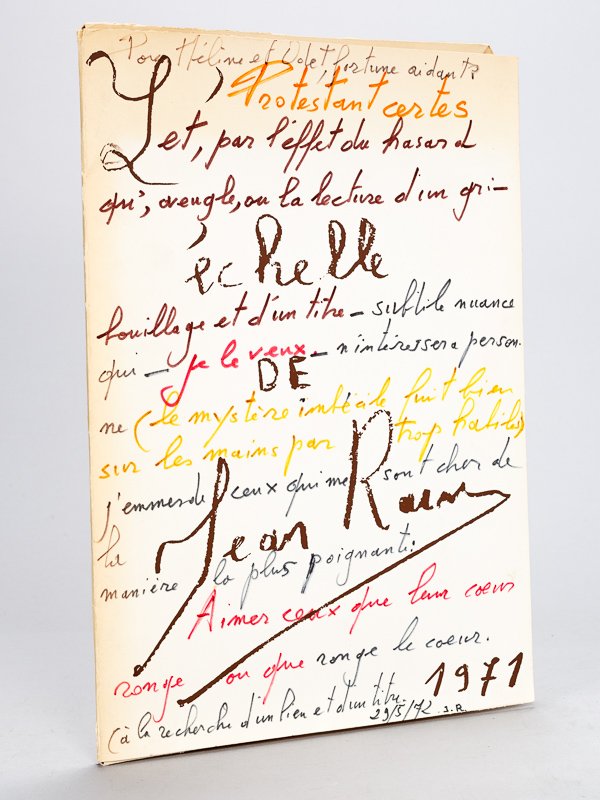 Pour Hélène et Odet, fortune aidant?
Protestant certes
L'
et, par l'effet du hasard
qui, aveugle, ou la lecture d'un gri-
échelle
bouillage et d'un titre - subtile nuance
qui - je le veux - n'intéressera person-
DE
ne (le mystère imbécile fuit bien
sur les mains par trop habiles)
j'emmerde ceux qui me sont cher de
Jean
la
manière la plus poignante:
Aimer ceux que leur coeur
ronge ou que ronge le coeur.
1971
(à la recherche d'un lien et d'un titre.
29/5/72 J.R.